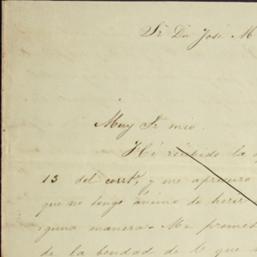 Sr Dn José M
Muy Sr mio
He recibido la
13 del corrte, y me apresuro
que no tengo ánimo de herir
guna manera. Me promet
de la bondad de V. que